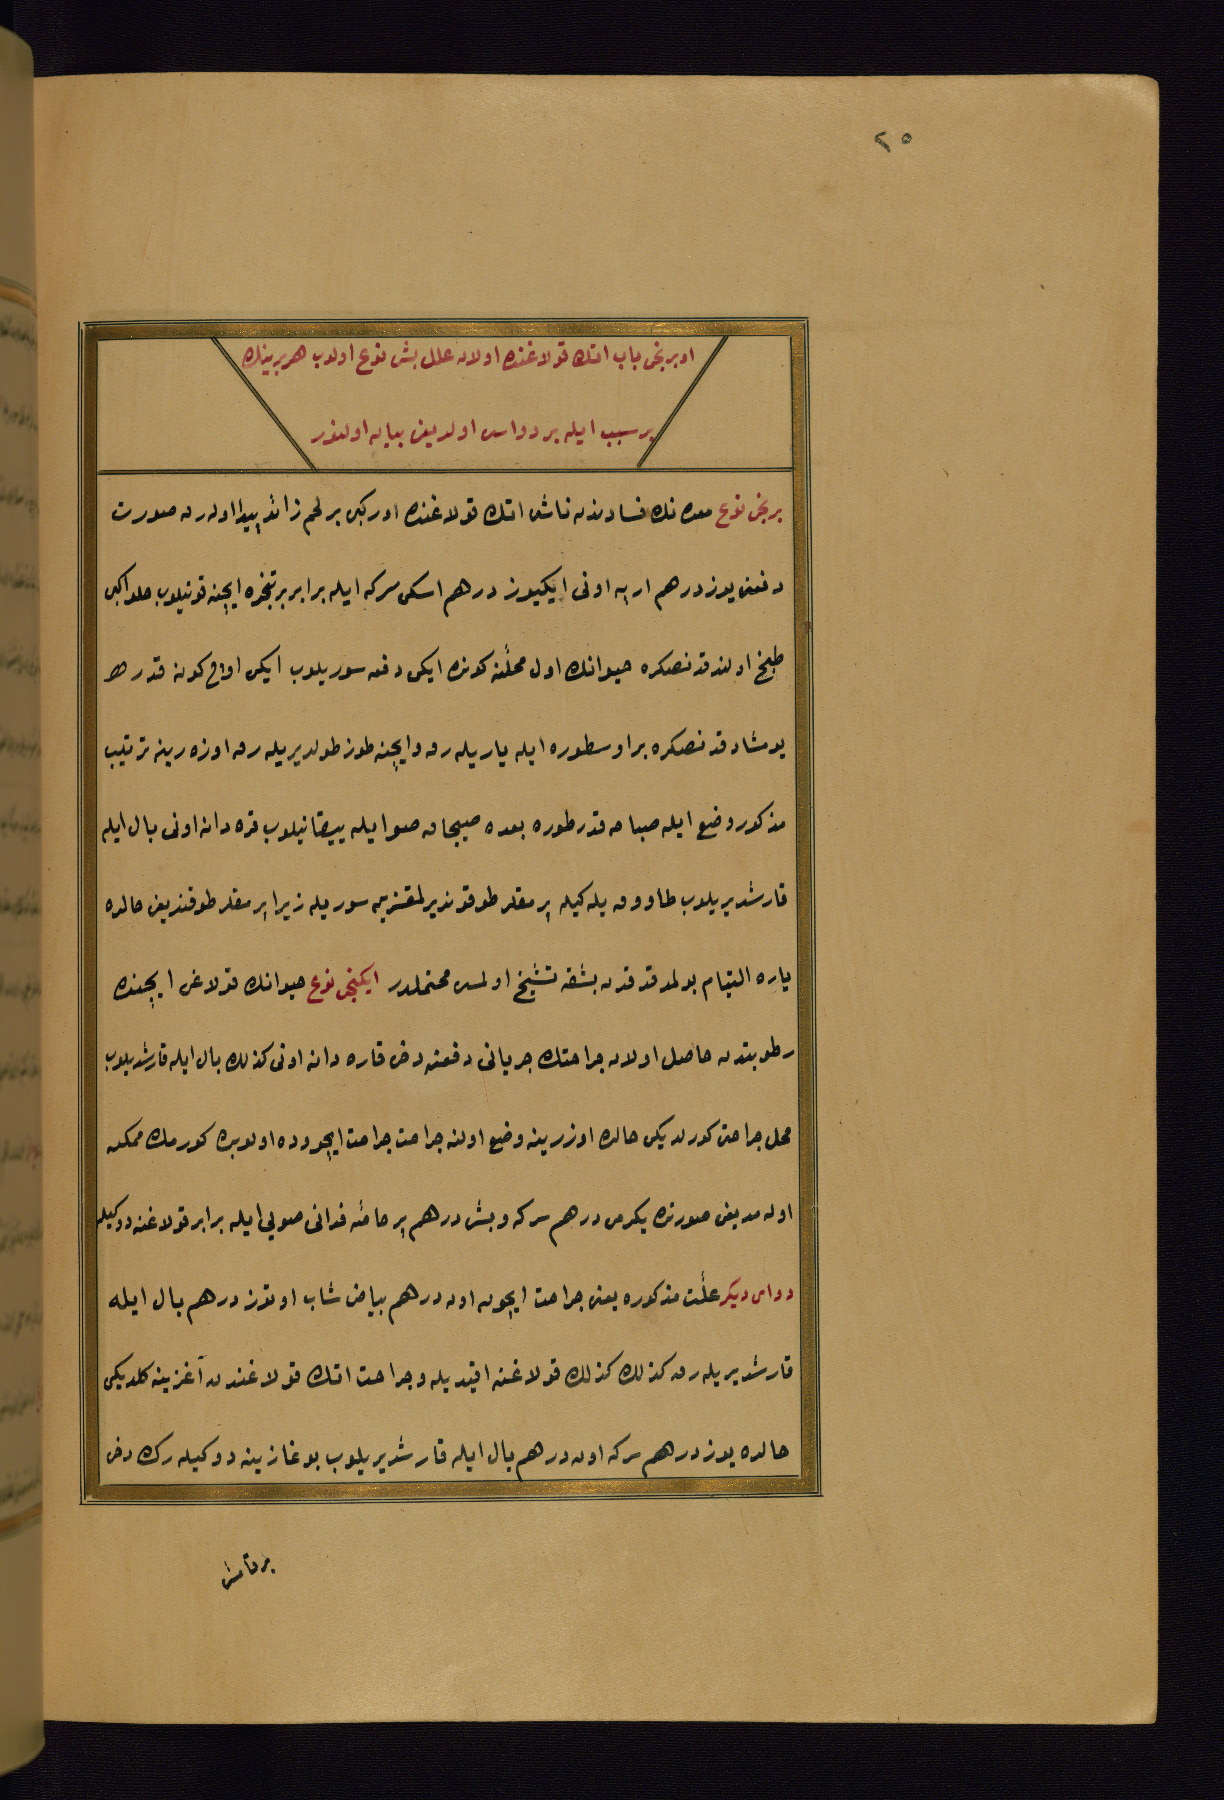 ٢٥
اوبرنجی باب اتك قولاغنده اولان علل بش نوع اولوب هر برینك
بر سبب ایله بر دواسی اولدیغی بیان اولنور
برنجی نوع معده نك فسادندن ناشی اتك قولاغنده اور کبی بر لحم زائد پیدا اوله رق صورت
دفعی یوز درهم ارپه اونی ایکیوز درهم اسکی سرکه ایله برابر بر تنجره ایچنه قونیلوب حلوا کبی
طبخ اولندقدنصکره حیوانك اول محلّنه کونده ایکی دفعه سوریلوب ایکی اوچ کون قدر
یومشادقدنصکره بر اوسطوره ایله یاریله رق وایچنه طوز طولدیریله رق اوزه رینه ترتیب
مذکور وضع ایله صباحه قدر طوره بعده صیجاق صو ایله ییقانیلوب قره دانه اونی بال ایله
قارشدیریلوب طاووق یله کیله پرمقلر طوقوندیرلمقسزین سوریله زیرا پرمقلر طوقندیغی حالده
یاره التیام بولمدقدن بشقه تشیخ اولمسی محتملدر ایکنجی نوع حیوانك قولاغی ایچنده
رطوبتدن حاصل اولان جراحتك جریانی دفعنه دخی قاره دانه اونی کذلك بال ایله قارشدیلوب
محل جراحتی کورلدیکی حالده اوزرینه وضع اولنه جراحت جراحت ایچروده اولوبده کورمك ممکن
اوله مدیغی صورتده یکرمی درهم سرکه وبش درهم یر حامئه فدانی صویی ایله برابر قولاغنه دوکیله
دوای دیکر علّت مذکوره یعنی جراحت ایچون اون درهم بیاض شاب اوتوز درهم بال ایله
قارشدیریله رق کذلك کذلك قولاغنه اقیدیله وجراحت اتك قولاغندن آغزینه کلدیکی
حالده یوز درهم سرکه اون درهم بال ایله قارشدیریلوب بوغازینه دوکیله رك دخی
برقامش